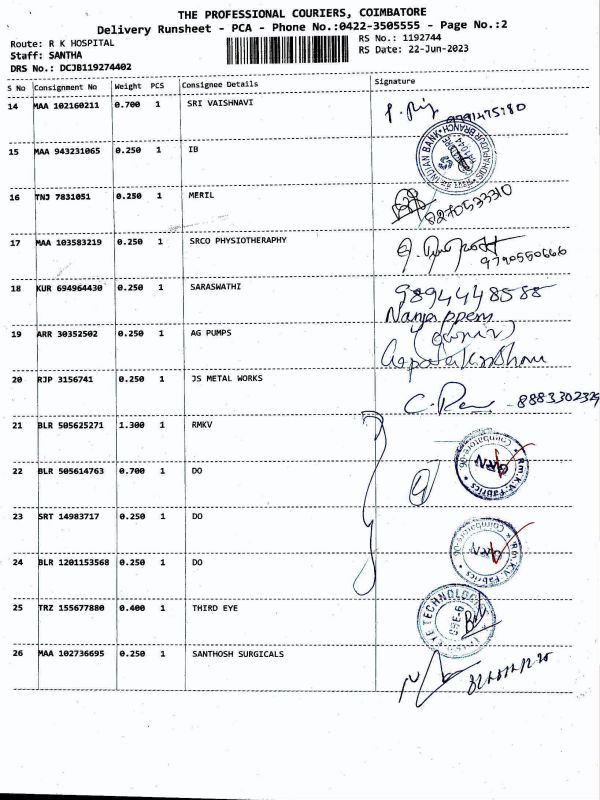 THE PROFESSIONAL COURIERS, COIMBATORE
Delivery Runsheet - PCA - Phone No.:0422-3505555 - Page No.:2
Route: R K HOSPITAL RS No.: 1192744
Staff: SANTHA RS Date: 22-Jun-2023
DRS No.: DCJB119274402
S No Consignment No Weight PCS Consignee Details Signature
14 MAA 102160211 0.700 1 SRI VAISHNAVI
15 MAA 943231065 0.250 1 IB INDIAN BANK
16 TNJ 7831051 0.250 1 MERIL 8270533310
17 MAA 103583219 0.250 1 SRCO PHYSIOTHERAPHY 9790550666
18 KUR 694964430 0.250 1 SARASWATHI 9894448588
19 ARR 30352502 0.250 1 AG PUMPS
20 RJP 3156741 0.250 1 JS METAL WORKS 8883302329
21 BLR 505625271 1.300 1 RMKV R.m.K.V. Fabrics Coimbatore-06 GRN
22 BLR 505614763 0.700 1 DO
23 SRT 14983717 0.250 1 DO R.m.K.V. Fabrics Coimbatore-06 GRN
24 BLR 1201153568 0.250 1 DO
25 TRZ 155677880 0.400 1 THIRD EYE EYE TECHNOLOG CBE-6
26 MAA 102736695 0.250 1 SANTHOSH SURGICALS